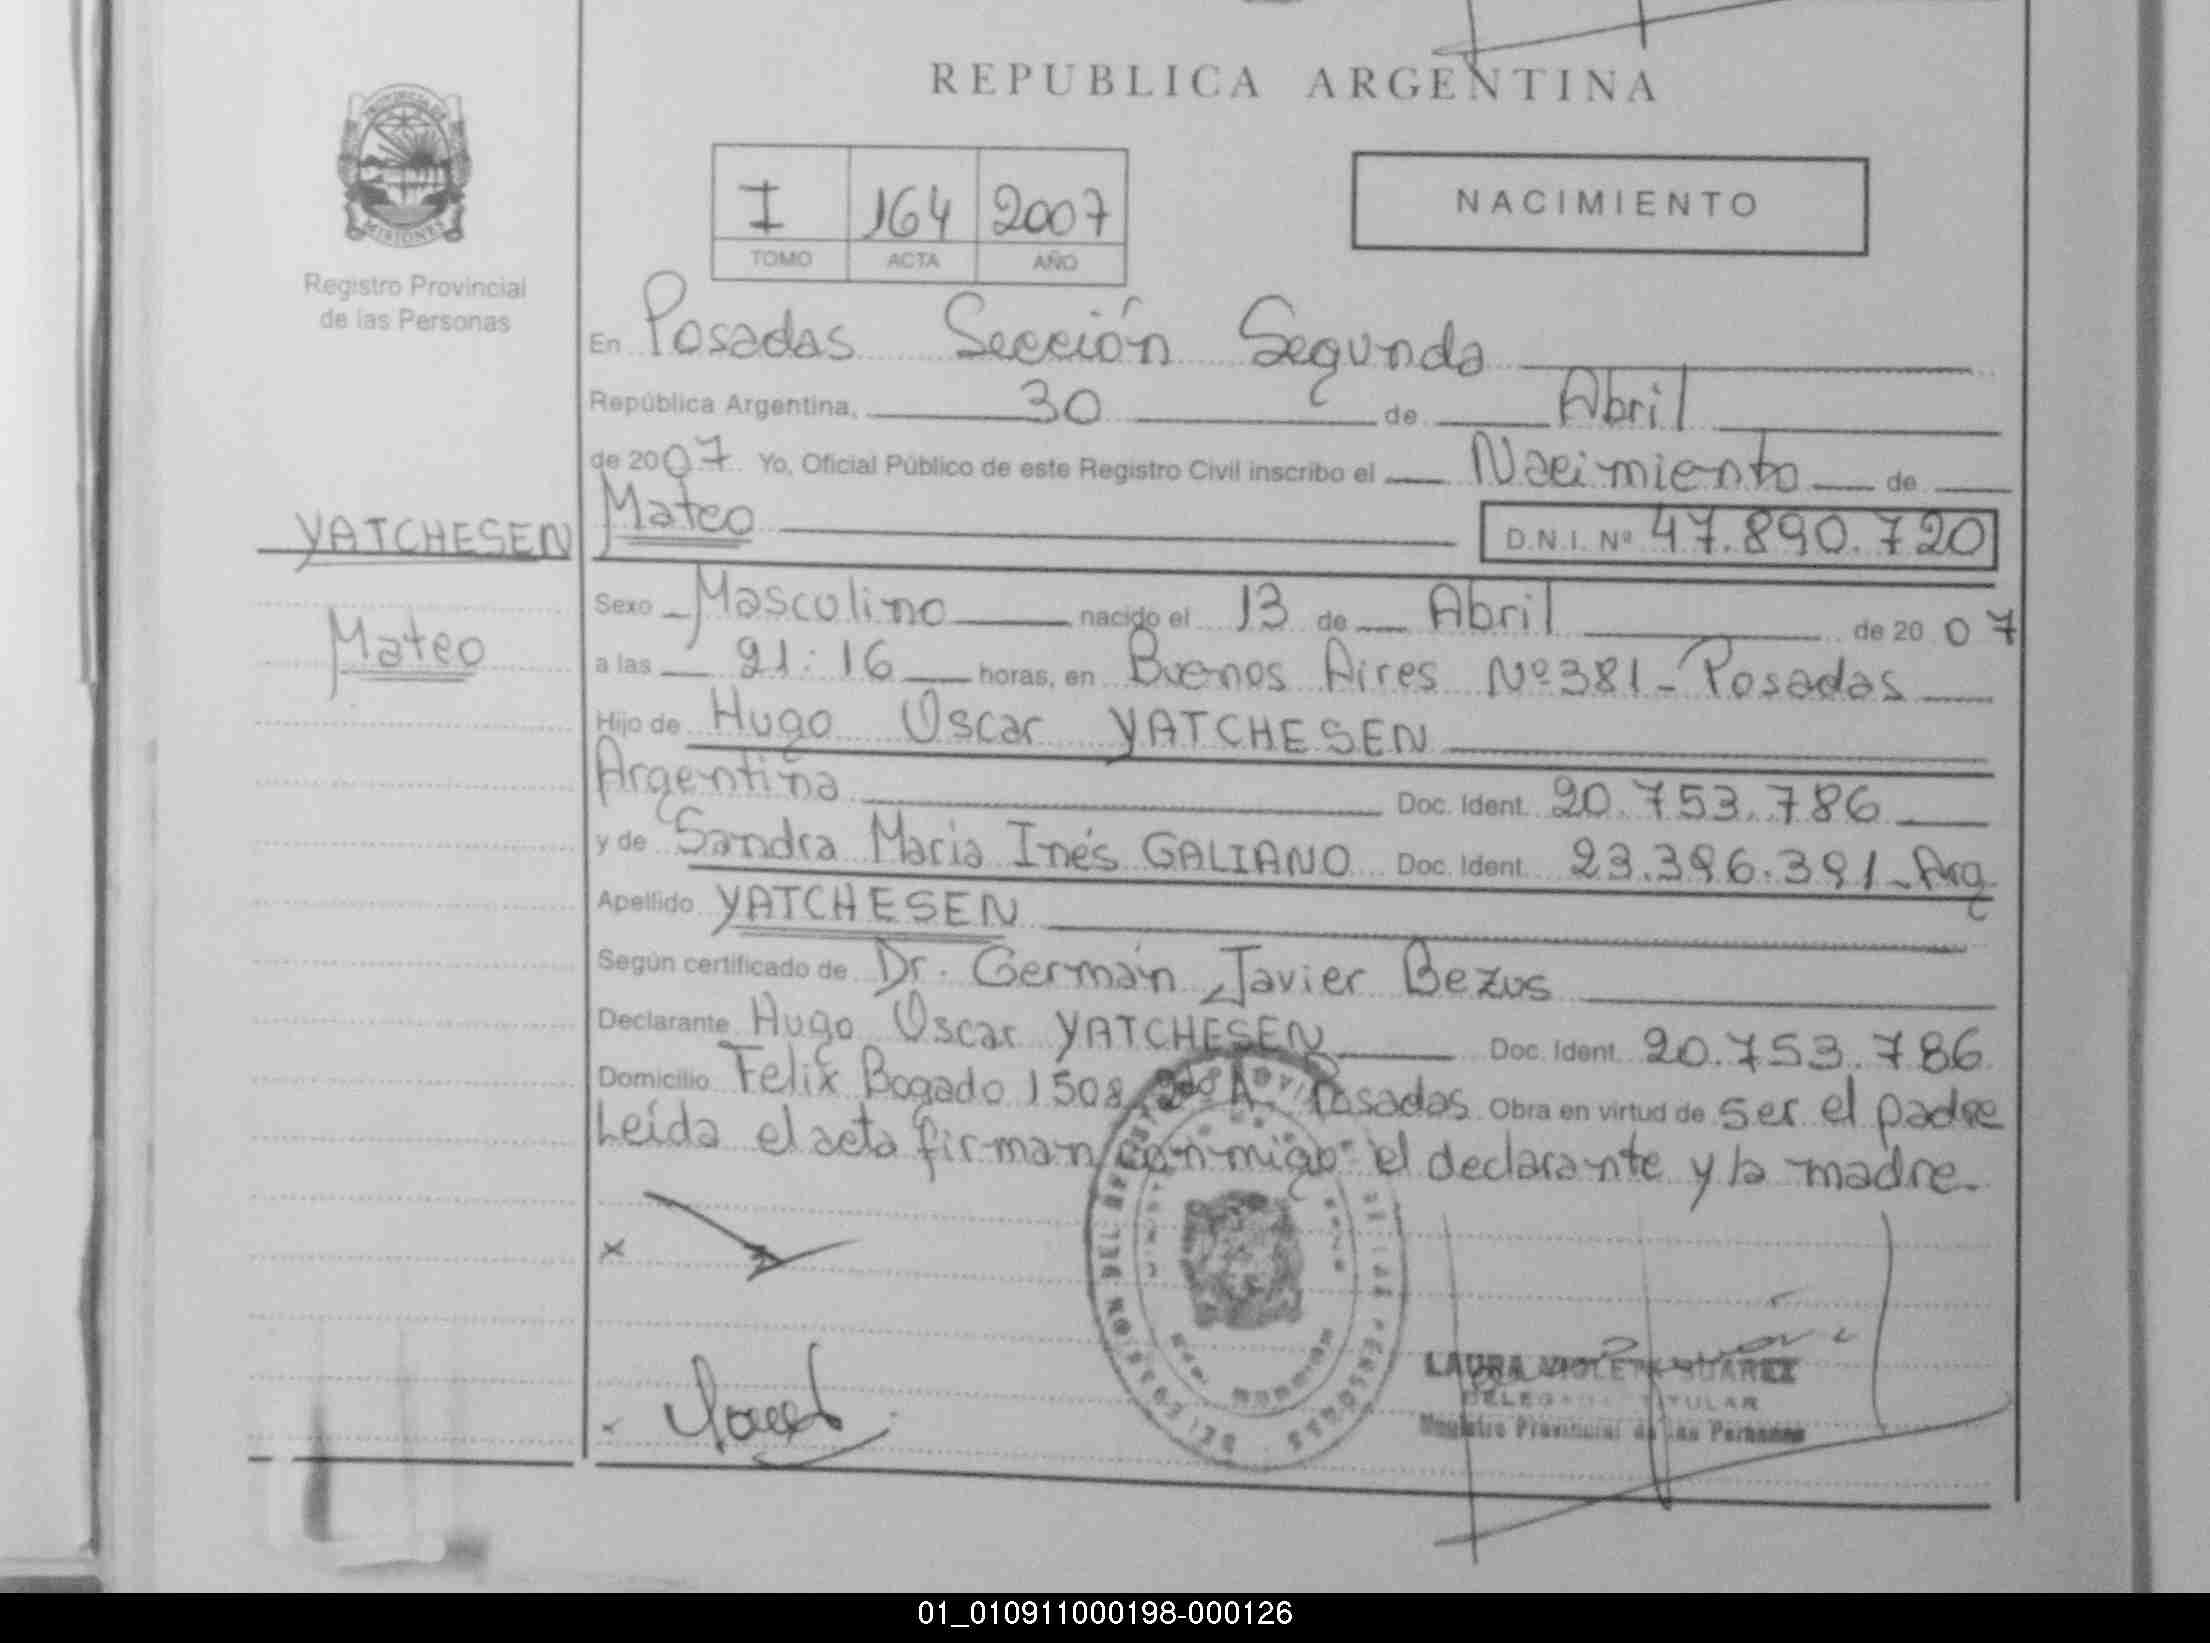 REPUBLICA ARGENTINA
PROVINCIA DE
MISIONES
Registro Provincial
de las Personas
I 164 2007
TOMO ACTA AÑO
NACIMIENTO
En Posadas Sección Segunda
República Argentina, 30 de Abril
de 2007 Yo, Oficial Público de este Registro Civil inscribo el Nacimiento de
YATCHESEN
Mateo
Mateo D.N.I. Nº 47.890.720
Sexo Masculino nacido el 13 de Abril de 20 07
a las 21:16 horas, en Buenos Aires Nº 381 - Posadas
Hijo de Hugo Oscar YATCHESEN
Argentina Doc. Ident. 20.753.786
y de Sandra Maria Inés GALIANO Doc. Ident. 23.396.391 - Arg
Apellido YATCHESEN
Según certificado de Dr. Germán Javier Bezus
Declarante Hugo Oscar YATCHESEN Doc. Ident. 20.753.786
Domicilio Felix Bogado 1508 Posadas Obra en virtud de ser el padre
Leída el acta firman conmigo el declarante y la madre.
LAURA VIOLETA SUAREZ
DELEGADA TITULAR
Registro Provincial de las Personas
01_010911000198-000126